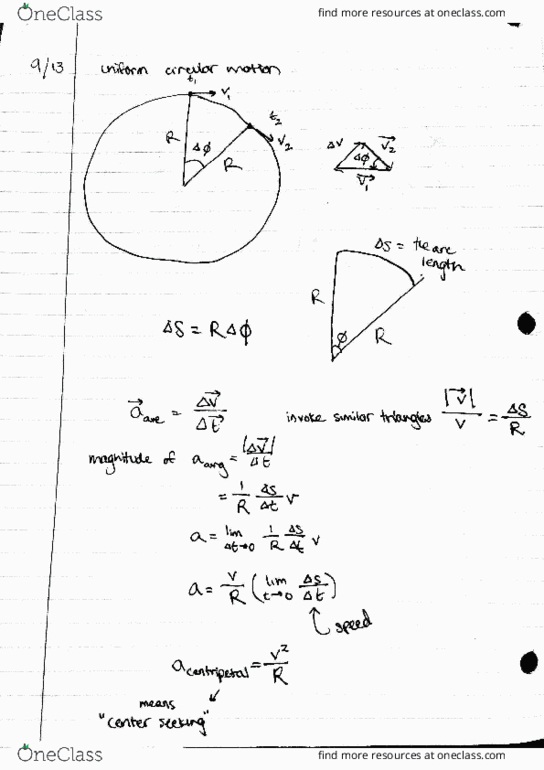 OneClass
find more resources at oneclass.com
9/13 uniform circular motion
t₁
v₁
t₂
v₂
R
Δϕ
R
Δv
v⃗₂
Δϕ
v⃗₁
Δs = the arc
length
R
ϕ
R
ΔS = RΔϕ
a⃗ave = Δv⃗/Δt⃗ invoke similar triangles |v⃗|/v = ΔS/R
magnitude of aavg = |Δv⃗|/Δt
= 1/R Δs/Δt v
a = lim Δt→0 1/R Δs/Δt v
a = v/R (lim t→0 Δs/Δt)
speed
acentripetal = v²/R
means
"center seeking"
OneClass
find more resources at oneclass.com